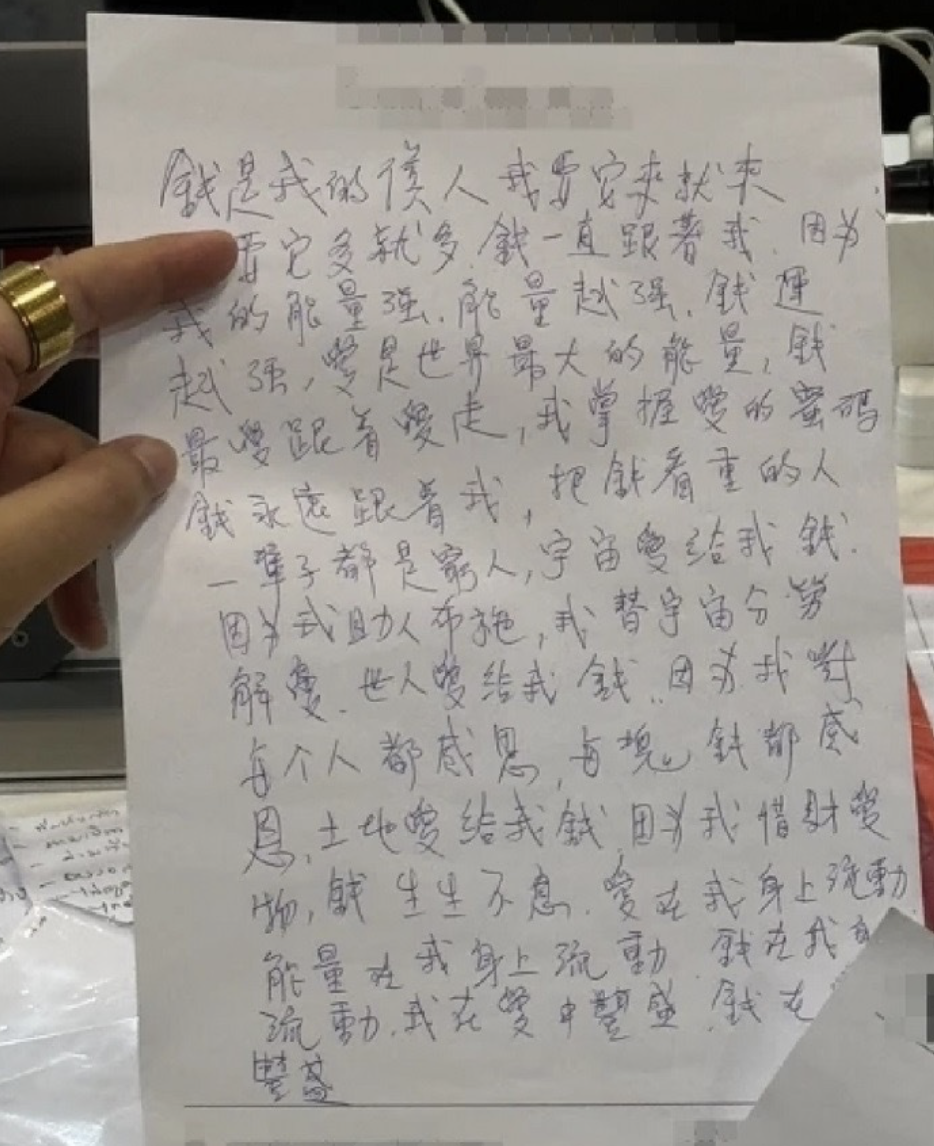 錢是我的僕人我要它來就來
要它多就多.錢一直跟著我.因为
我的能量强.能量越强.錢運
越强,愛是世界最大的能量,錢
最愛跟着愛走,我掌握愛的蜜码
錢永遠跟着我,把錢看重的人
一輩子都是窮人,宇宙愛给我錢.
因为我助人布施,我替宇宙分劳
解憂.世人愛给我錢.因为我對
每个人都感恩,每塊錢都感
恩,土地愛给我錢因为我惜財愛
物,錢生生不息.愛在我身上流動
能量在我身上流動.錢在我身
流動.我在愛中豐盛.錢在
豐盛